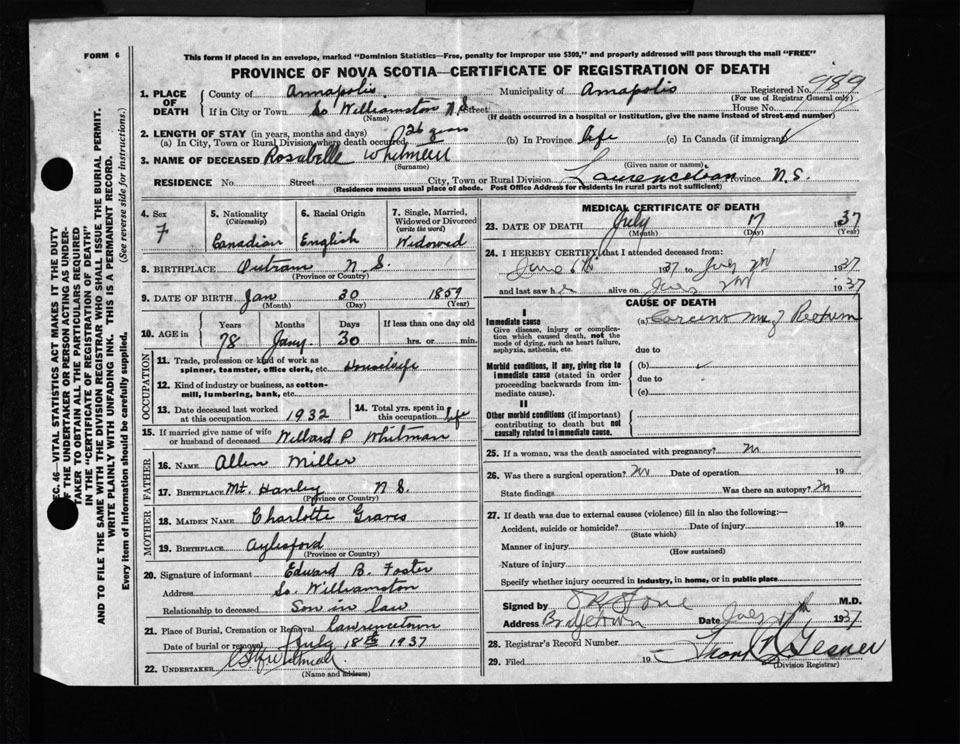 FORM 6
This form if placed in an envelope, marked "Dominion Statistics—Free, penalty for improper use $300," and properly addressed will pass through the mail "FREE"
PROVINCE OF NOVA SCOTIA—CERTIFICATE OF REGISTRATION OF DEATH
SEC. 46—VITAL STATISTICS ACT MAKES IT THE DUTY
OF THE UNDERTAKER OR PERSON ACTING AS UNDER-
TAKER TO OBTAIN ALL THE PARTICULARS REQUIRED
IN THE "CERTIFICATE OF REGISTRATION OF DEATH"
AND TO FILE THE SAME WITH THE DIVISION REGISTRAR WHO SHALL ISSUE THE BURIAL PERMIT.
WRITE PLAINLY WITH UNFADING INK. THIS IS A PERMANENT RECORD.
Every item of information should be carefully supplied. (See reverse side for instructions.)
1. PLACE OF DEATH
County of Annapolis Municipality of Annapolis Registered No. 989
(For use of Registrar General only)
If in City or Town So Williamston N.S. Street House No.
(Name) (If death occurred in a hospital or institution, give the name instead of street and number)
2. LENGTH OF STAY (in years, months and days)
(a) In City, Town or Rural Division where death occurred 26 years (b) In Province life (c) In Canada (if immigrant)
3. NAME OF DECEASED Rosabelle Whitman
(Surname) (Given name or names)
RESIDENCE No. Street City, Town or Rural Division Lawrencetown Province N.S.
(Residence means usual place of abode. Post Office Address for residents in rural parts not sufficient)
4. Sex F
5. Nationality (Citizenship) Canadian
6. Racial Origin English
7. Single, Married, Widowed or Divorced (write the word) Widowed
8. BIRTHPLACE Outram N.S.
(Province or Country)
9. DATE OF BIRTH Jan 30 1859
(Month) (Day) (Year)
10. AGE in Years 78 Months Jany. Days 30 If less than one day old hrs. or min.
OCCUPATION
11. Trade, profession or kind of work as spinner, teamster, office clerk, etc. Housewife
12. Kind of industry or business, as cotton-mill, lumbering, bank, etc.
13. Date deceased last worked at this occupation 1932
14. Total yrs. spent in this occupation life
15. If married give name of wife or husband of deceased Willard P Whitman
FATHER
16. NAME Allen Miller
17. BIRTHPLACE Mt. Hanley N S.
(Province or Country)
MOTHER
18. MAIDEN NAME Charlotte Graves
19. BIRTHPLACE Aylesford
(Province or Country)
20. Signature of informant Edward B. Foster
Address So. Williamston
Relationship to deceased Son in law
21. Place of Burial, Cremation or Removal Lawrencetown
Date of burial or removal July 18th 1937
22. UNDERTAKER
(Name and address)
MEDICAL CERTIFICATE OF DEATH
23. DATE OF DEATH July 17 1937
(Month) (Day) (Year)
24. I HEREBY CERTIFY that I attended deceased from:
June 6th 1937 to July 2nd 1937
and last saw her alive on July 2nd 1937
CAUSE OF DEATH
I
Immediate cause
Give disease, injury or complication which caused death, not the mode of dying, such as heart failure, asphyxia, asthenia, etc.
(a) Carcinoma of Rectum
due to
Morbid conditions, if any, giving rise to immediate cause (stated in order proceeding backwards from immediate cause).
(b)
due to
(c)
II
Other morbid conditions (if important) contributing to death but not causally related to immediate cause.
25. If a woman, was the death associated with pregnancy?
26. Was there a surgical operation? Date of operation 19
State findings Was there an autopsy?
27. If death was due to external causes (violence) fill in also the following:—
Accident, suicide or homicide? Date of injury 19
(State which)
Manner of injury
(How sustained)
Nature of injury
Specify whether injury occurred in industry, in home, or in public place
Signed by M.D.
Address Bridgetown Date July 1937
28. Registrar's Record Number
29. Filed 19
(Division Registrar)